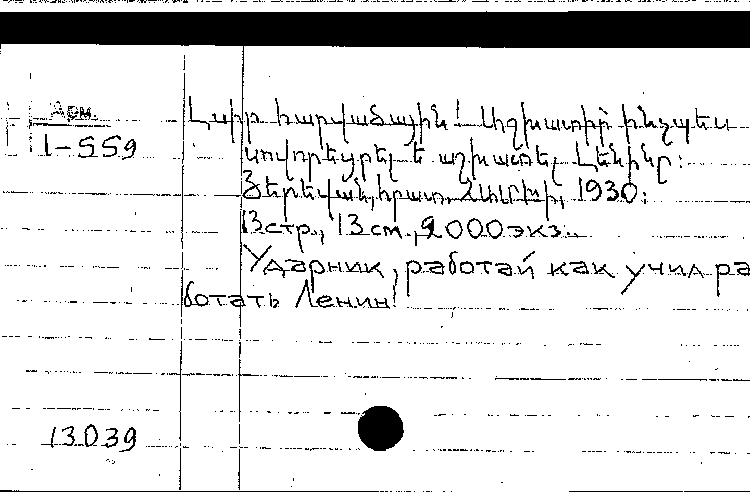 Арм.
1-559
Լսիր հարվածային! Աշխատիր ինչպես
սովորեցրել է աշխատել Լենինը:
Յերեվան, հրատ. 1930:
13 стр., 13 см., 2000 экз.
Ударник, работай как учил ра
ботать Ленин!
13039